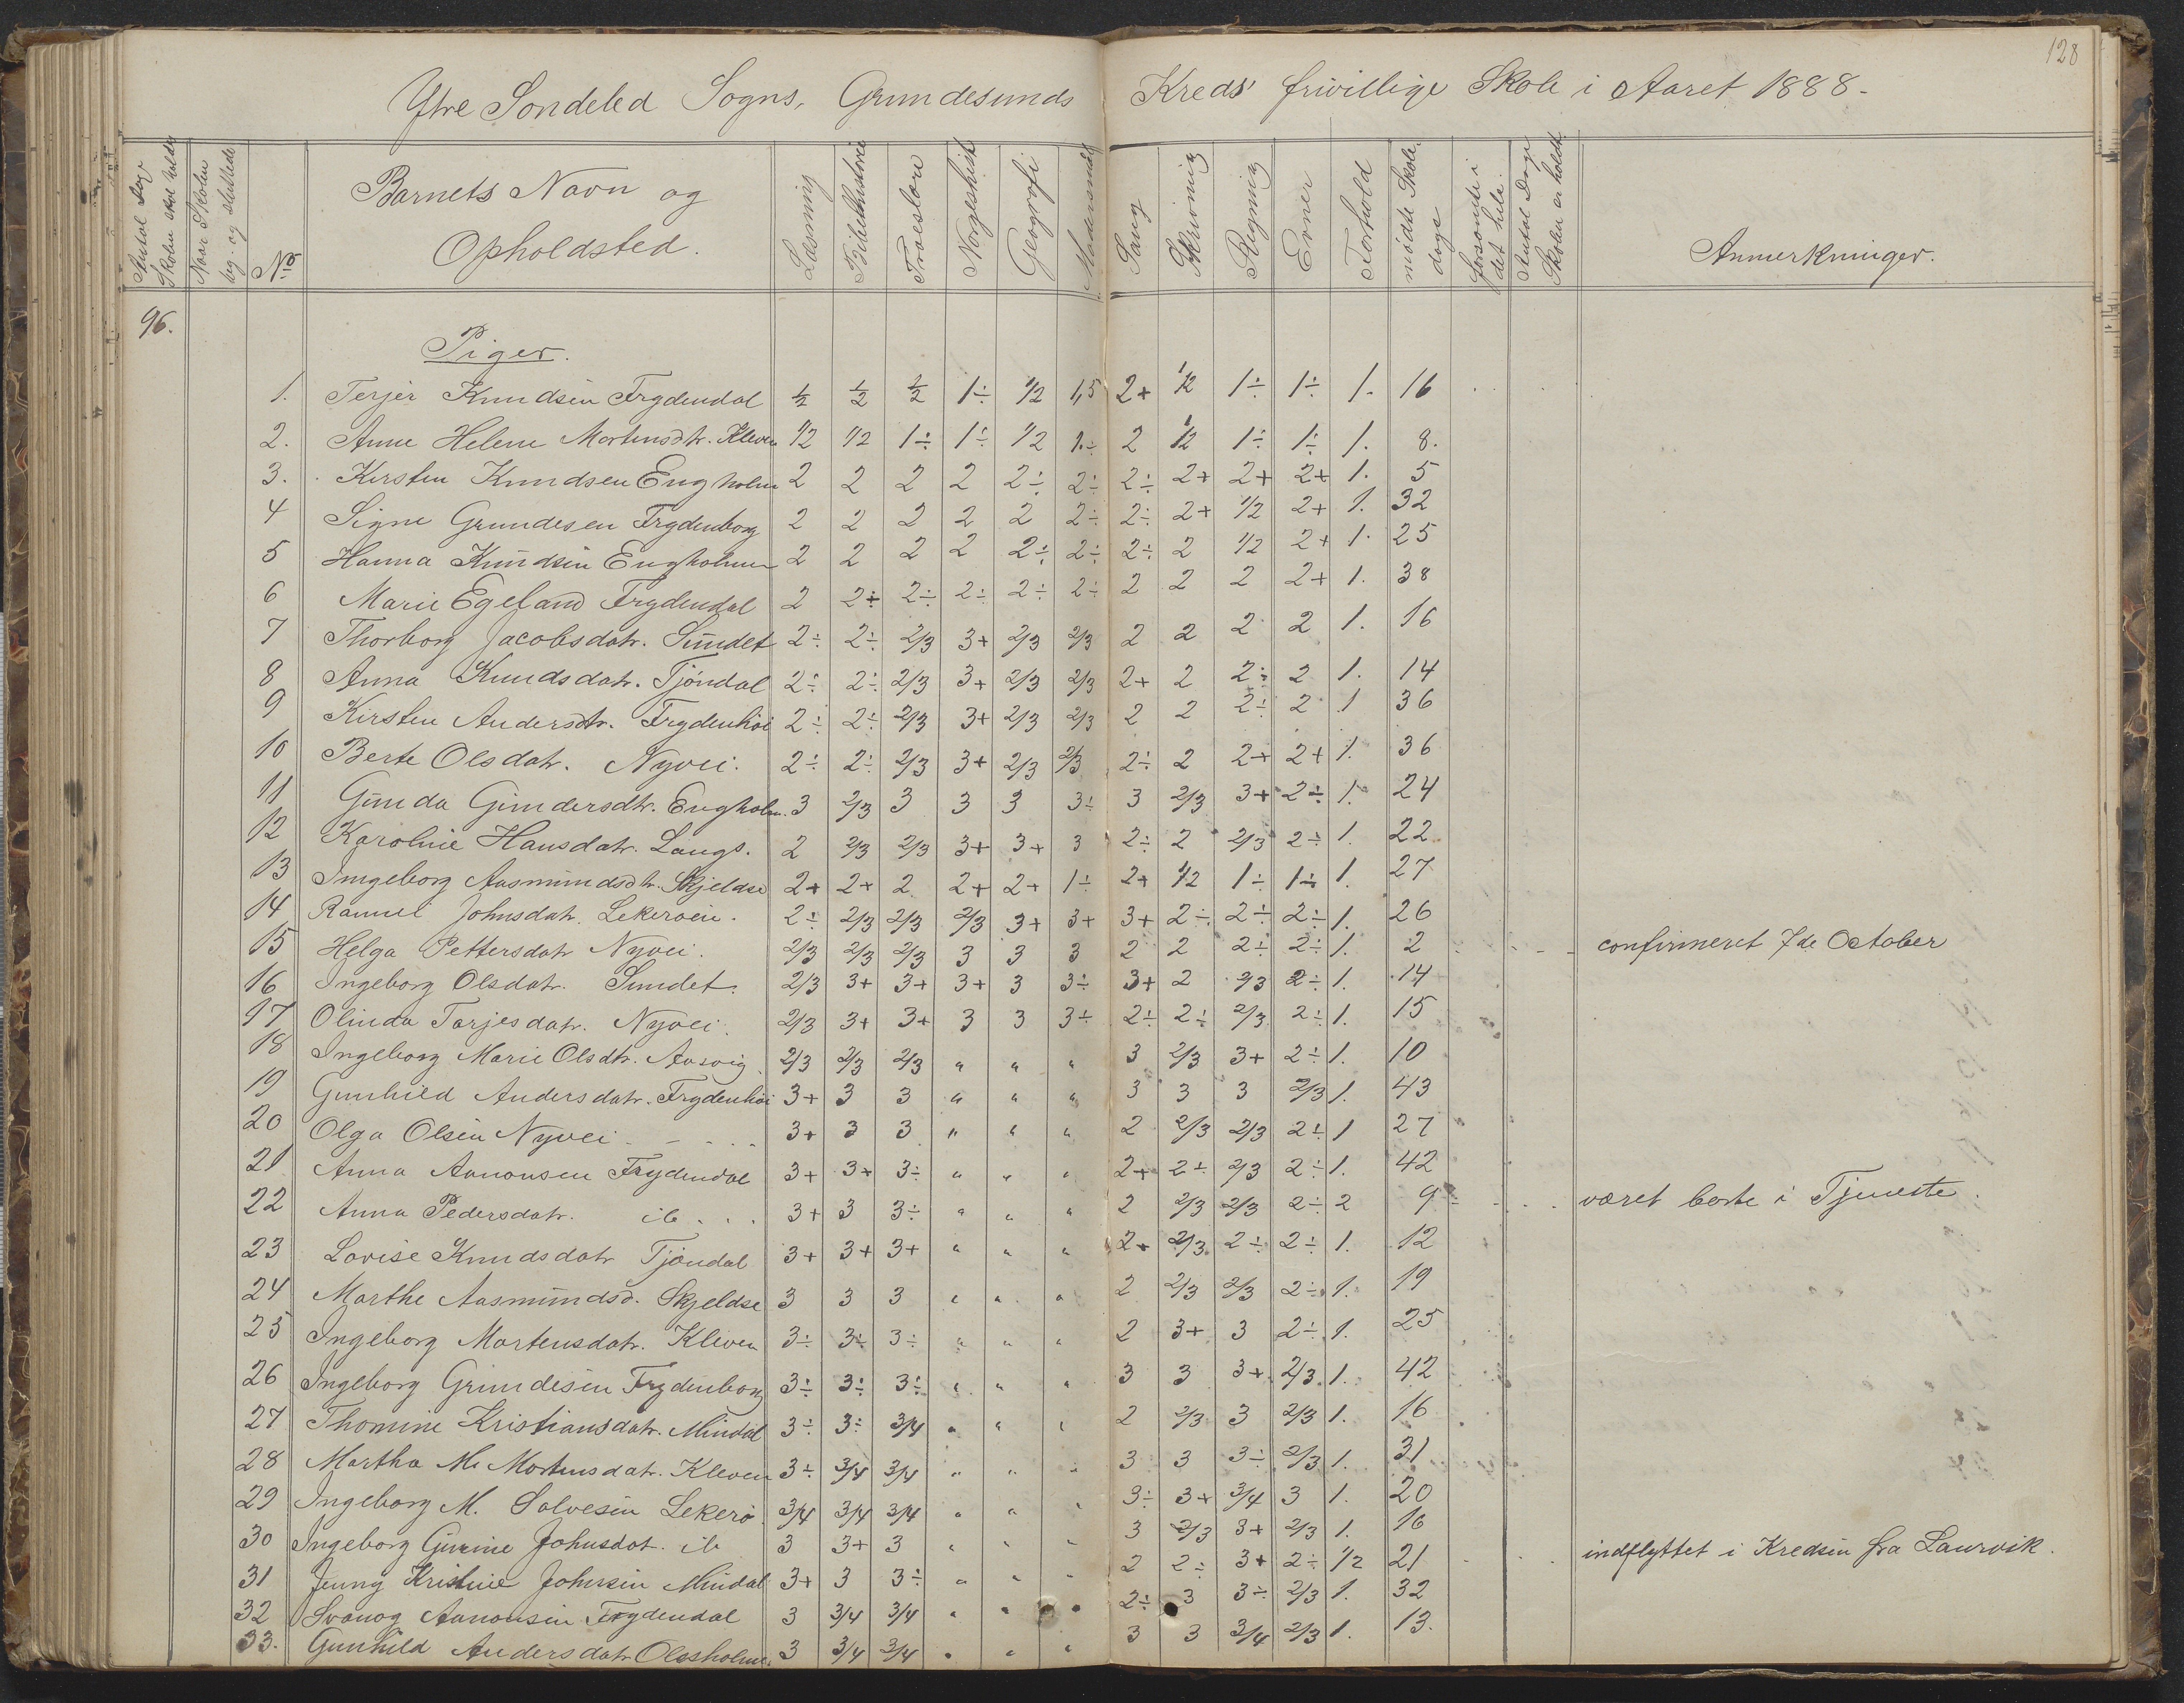 128
Ytre Søndeled Sogns, Grundesunds Kreds' frivillige Skole i Aaret 1888.
Antal Dage Skolen skal holdes
Naar Skolen beg. og sluttede
No
Barnets Navn og
Opholdsted.
Læsning
Bibelhistorie
Troeslære
Norgeshist
Geografi
Modersmaal
Sang
Skrivning
Regning
Evner
Forhold
mødte Skoledage
forsømte i det hele.
Antal Dage Skolen er holdt
Anmerkninger.
96.
Piger.
1. Terjer Knudsen Frydendal ½ ½ ½ 1÷ ½ 1,5 2+ ½ 1÷ 1÷ 1. 16
2. Anne Helene Mortensdtr. Kleven 1/2 1/2 1÷ 1÷ 1/2 1.÷ 2 1/2 1÷ 1÷ 1. 8.
3. Kirsten Knudsen Engholm 2 2 2 2 2÷ 2÷ 2÷ 2+ 2+ 2+ 1. 5
4 Signe Grundesen Frydenborg 2 2 2 2 2 2÷ 2÷ 2+ 1/2 2+ 1. 32
5 Hanna Knudsen Engholmen 2 2 2 2 2÷ 2÷ 2÷ 2 1/2 2+ 1. 25
6 Marie Egeland Frydendal 2 2÷ 2÷ 2÷ 2÷ 2÷ 2 2 2 2+ 1. 38
7 Thorborg Jacobsdatr. Sundet 2÷ 2÷ 2/3 3+ 2/3 2/3 2 2 2 2 1. 16
8 Anna Knudsdatr. Tjöndal 2÷ 2÷ 2/3 3+ 2/3 2/3 2+ 2 2÷ 2 1. 14
9 Kirsten Andersdtr. Frydenhöi 2÷ 2÷ 2/3 3+ 2/3 2/3 2 2 2÷ 2 1 36
10 Berte Olsdatr. Nyvei. 2÷ 2÷ 2/3 3+ 2/3 2/3 2÷ 2 2+ 2+ 1. 36
11 Gunda Gundersdtr. Engholm. 3 2/3 3 3 3 3÷ 3 2/3 3+ 2÷ 1. 24
12 Karoline Hansdatr. Langs. 2 2/3 2/3 3+ 3+ 3 2÷ 2 2/3 2÷ 1. 22
13 Ingeborg Aasmundsdtr. Skjeldsø 2+ 2+ 2 2+ 2+ 1÷ 2+ 1/2 1÷ 1÷ 1. 27
14 Johnsdatr. Lekerøen. 2÷ 2/3 2/3 2/3 3+ 3+ 3+ 2÷ 2÷ 2÷ 1. 26
15 Helga Pettersdatr Nyvei. 2/3 2/3 2/3 3 3 3 2 2 2÷ 2÷ 1. 2 - - - confirmeret 7de October
16 Ingeborg Olsdatr. Sundet. 2/3 3+ 3+ 3+ 3 3÷ 3+ 2 2/3 2÷ 1. 14
17 Olinda Tarjesdatr. Nyvei. 2/3 3+ 3+ 3 3 3÷ 2÷ 2÷ 2/3 2÷ 1. 15
18 Ingeborg Marie Olsdtr. Aasvig. 2/3 2/3 2/3 " " " 3 2/3 3+ 2÷ 1. 10
19 Gunhild Andersdatr. Frydenhöi 3+ 3 3 " " " 3 3 3 2/3 1. 43
20 Olga Olsen Nyvei - - - 3+ 3 3 " " " 2 2/3 2/3 2÷ 1 27
21 Anna Aanonsen Frydendal 3+ 3+ 3÷ " " " 2+ 2÷ 2/3 2÷ 1. 42
22 Anna Pedersdatr. ib . . . 3+ 3 3÷ " " " 2 2/3 2/3 2÷ 2 9 - - - været borte i Tjeneste.
23 Lovise Knudsdatr Tjöndal 3+ 3+ 3+ " " " 2+ 2/3 2÷ 2÷ 1. 12
24 Marthe Aasmundsd. Skjeldsø 3 3 3 " " " 2 2/3 2/3 2÷ 1. 19
25 Ingeborg Mortensdatr. Kleven 3÷ 3÷ 3÷ " " " 2 3+ 3 2÷ 1. 25
26 Ingeborg Grundesen Frydenborg 3÷ 3÷ 3÷ " " " 3 3 3+ 2/3 1. 42
27 Thomine Kristiansdatr. Mindal 3÷ 3÷ 3/4 " " " 2 2/3 3 2/3 1. 16
28 Martha M. Mortensdatr. Kleven 3÷ 3/4 3/4 " " " 3 3 3÷ 2/3 1. 31
29 Ingeborg M. Salvesen Lekerø 3/4 3/4 3/4 " " " 3÷ 3+ 3/4 3 1. 20
30 Ingeborg Gurine Johnsdat. ib 3 3+ 3 " " " 3 2/3 3+ 2/3 1. 16
31 Jenny Kristine Johnsen Mindal 3+ 3 3÷ " " " 2 2÷ 3+ 2÷ 1/2 21 - - - indflyttet i Kredsen fra Laurvik.
32 Svanog Aanonsen Frydendal 3 3/4 3/4 " " " 2÷ 3 3÷ 2/3 1. 32
33. Gunhild Andersdatr Olssholmen. 3 3/4 3/4 " " " 3 3 3/4 2/3 1. 13.